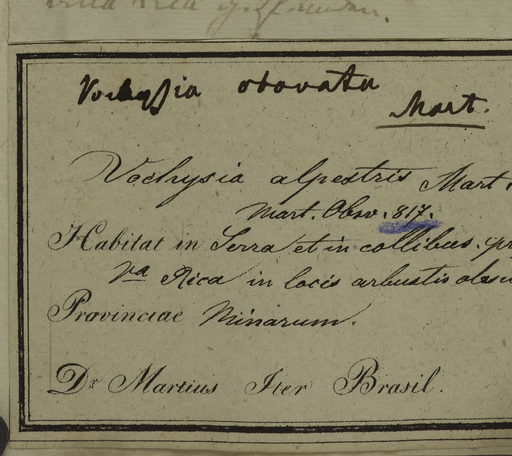 Vochysia obovata
Mart.
Vochysia alpestris Mart.
Mart. Obsv. 817.
Habitat in Serra et in collibus
Va Rica in locis arbustis
Provinciae Minarum.
Dr Martius Iter Brasil.